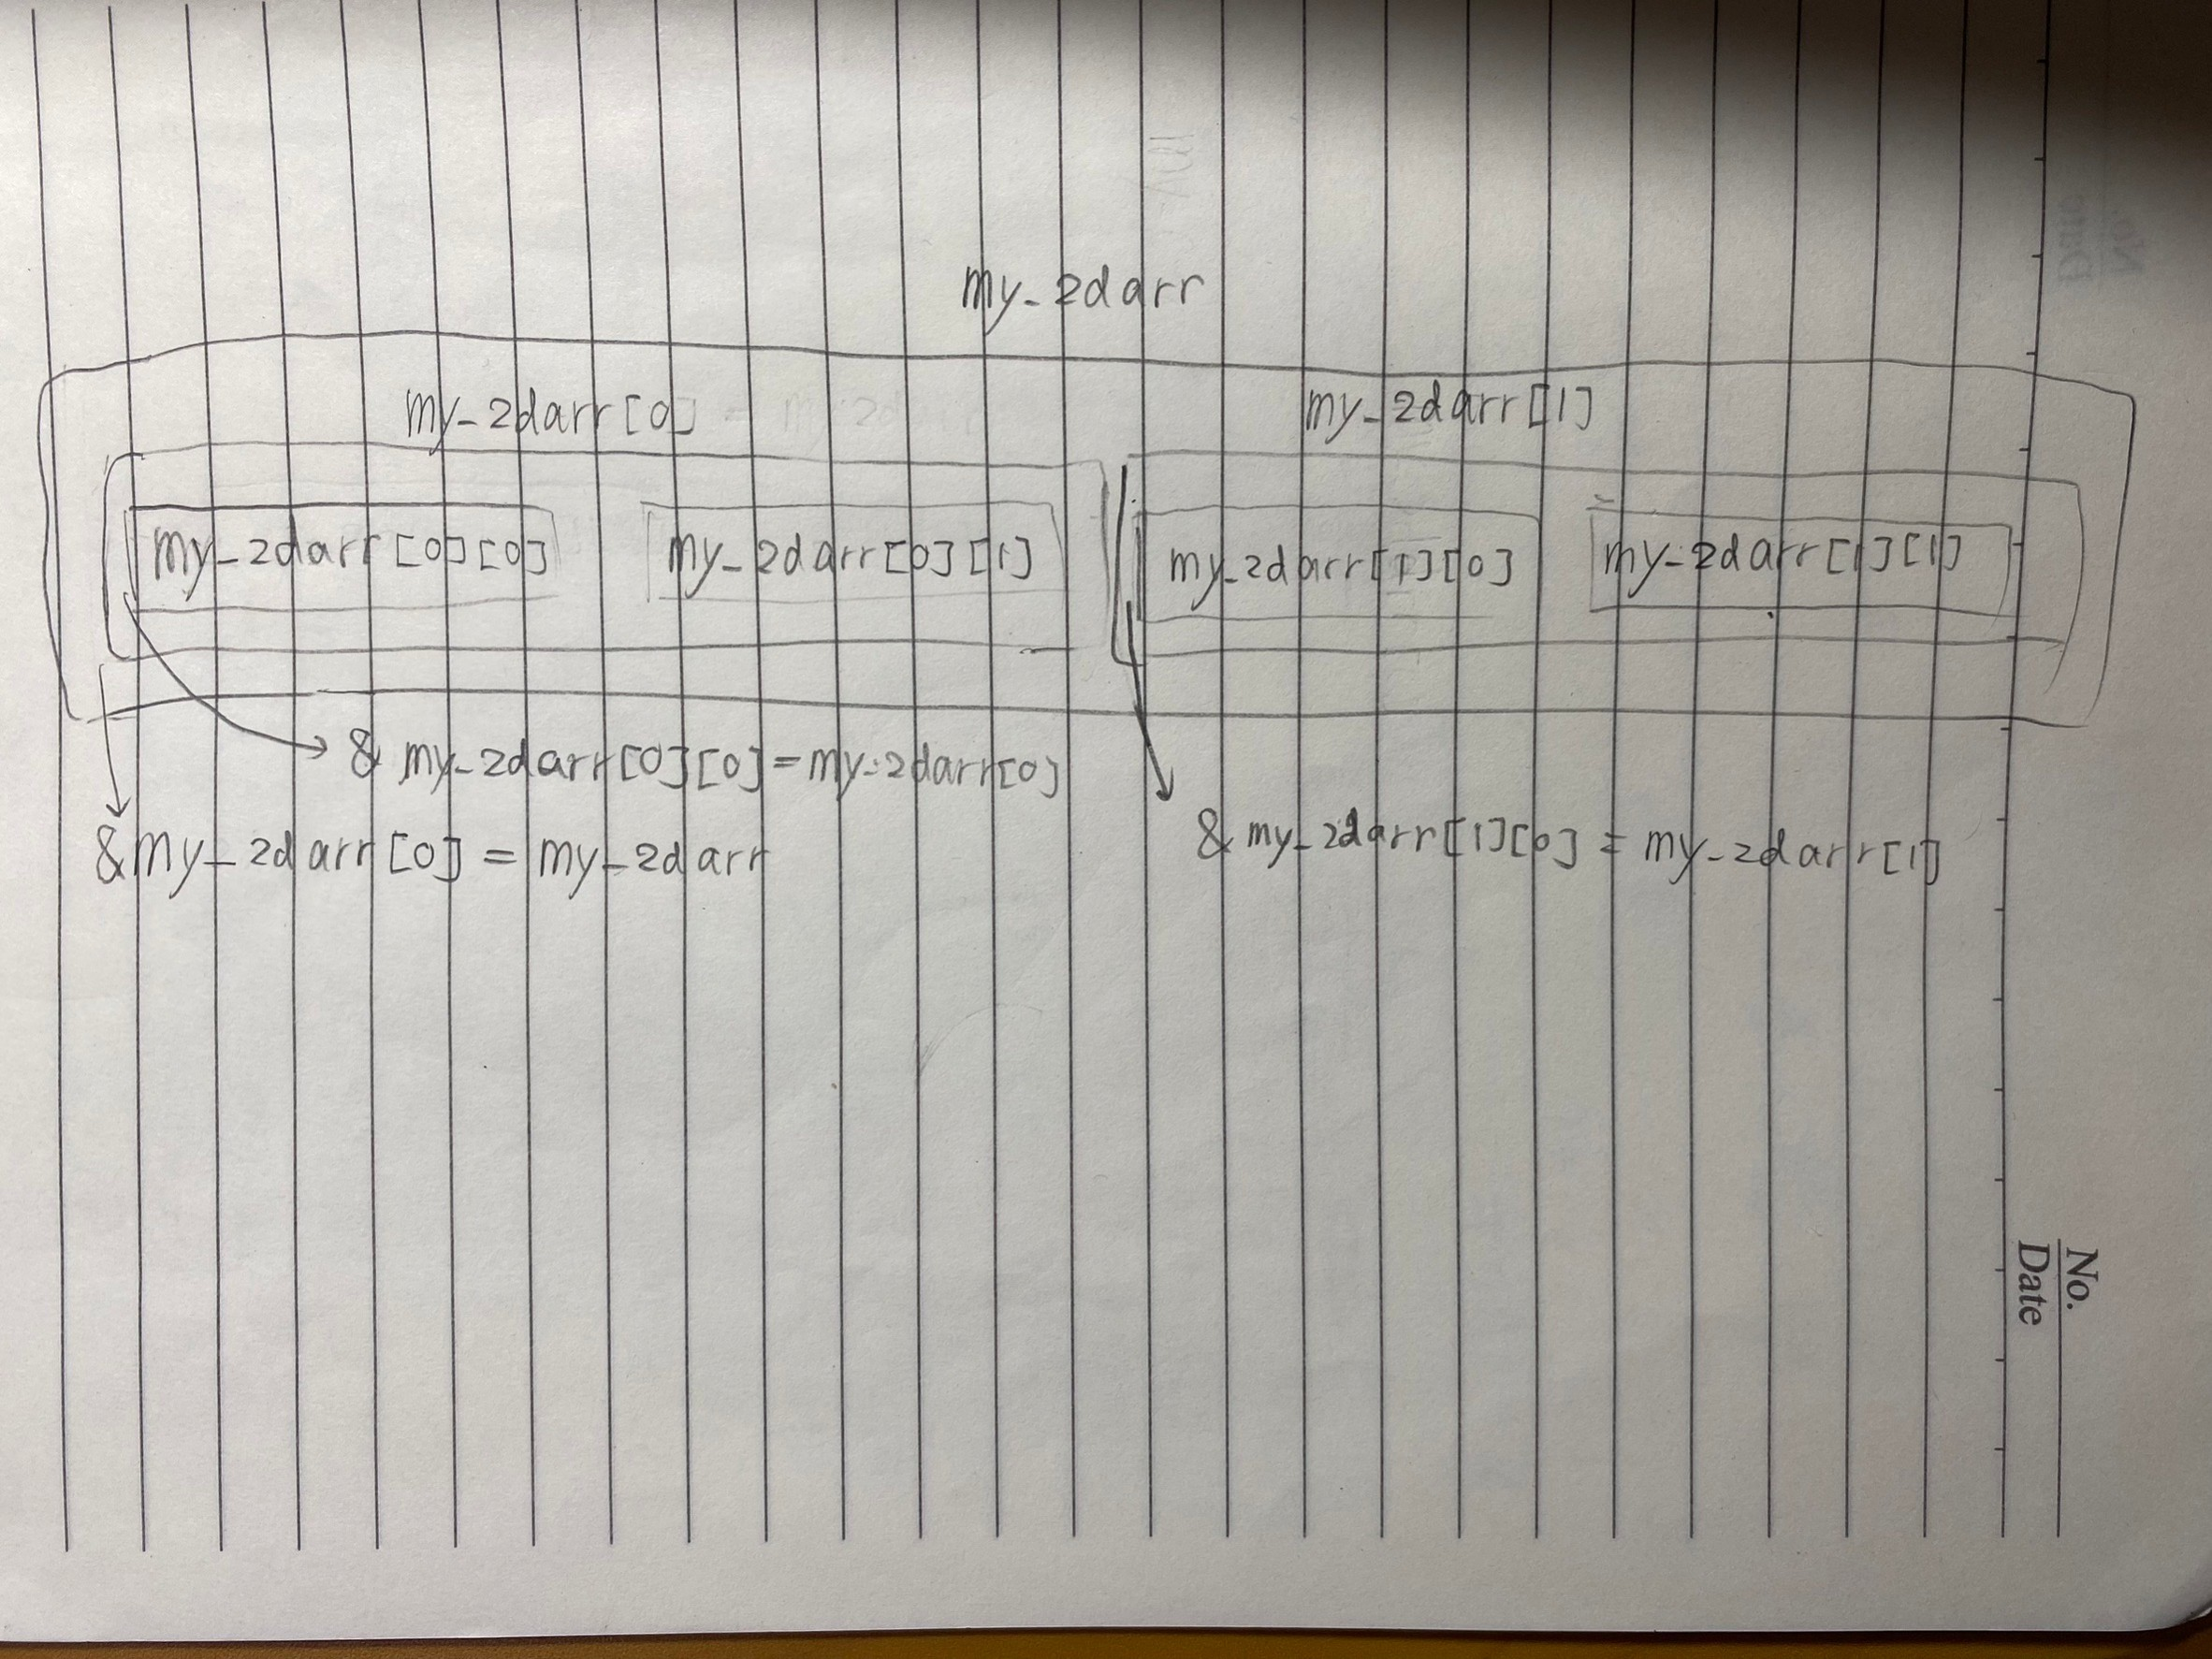 my_2darr
my_2darr[0]
my_2darr[1]
my_2darr[0][0]
my_2darr[0][1]
my_2darr[1][0]
my_2darr[1][1]
& my_2darr[0][0] = my_2darr[0]
&my_2darr[0] = my_2darr
& my_2darr[1][0] = my_2darr[1]
No.
Date